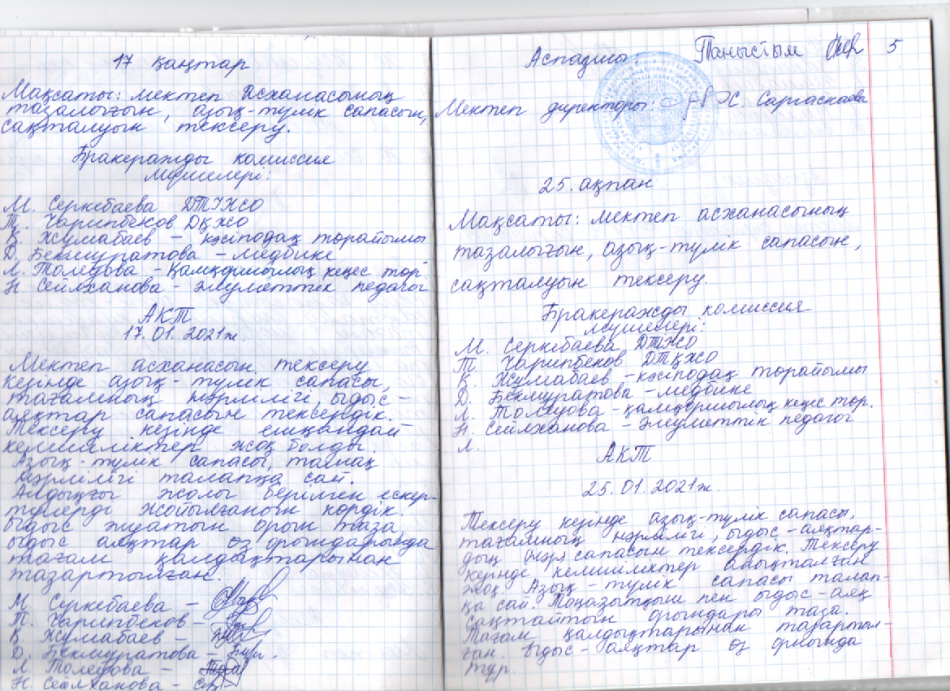 17 қаңтар
Мақсаты: мектеп асханасының
тазалығын, азық-түлік сапасын,
сақталуын тексеру.
Бракеражды комиссия
мүшелері:
М. Серкебаева ДТІЖО
Т. Чарипбеков ДҚЖО
Қ. Жумабаев - кәсіподақ төрайымы
Д. Бекмуратова - медбике
Л. Толеуова - Қамқоршылық кеңес төр
Н Сейлханова - Әлуметтік педагог
АКТ
17.01.2021ж.
Мектеп асханасын тексеру
кезінде азық-түлік сапасы,
тағамның нәрлілігі, ыдыс-
аяқтар сапасын тексердік.
Тексеру кезінде ешқандай
кемшіліктер жоқ болды.
Азық-түлік сапасы, тамақ
нәрлілігі талапқа сай.
Алдыңғы жолғы берілген ескер-
тулерді жойылғанын көрдік.
Ыдыс жуатын орын таза
ыдыс аяқтар өз орындарында
тағам қалдықтарынан
тазартылған.
М. Серкебаева -
Т. Чарипбеков -
Қ. Жумабаев -
Д. Бекмуратова -
Л Толеуова -
Н. Сейлханова -
Аспазшы: Таныстым 5
Мектеп директоры: Х. Саргаскаева
25. ақпан
Мақсаты: мектеп асханасының
тазалығын, азық-түлік сапасын,
сақталуын тексеру.
Бракеражды комиссия
мүшелері:
М. Серкебаева ДТЖО
Т. Чарипбеков ДТҚЖО
Қ. Жумабаев - кәсіподақ төрайымы
Д. Бекмуратова - медбике
Л. Толеуова - қамқоршылық кеңес төр.
Н. Сейлханова - әлеуметтік педагог
Л.
АКТ
25.01.2021ж.
Тексеру кезінде азық-түлік сапасы,
тағамның нәрлілігі, ыдыс-аяқтар-
дың сапасын тексердік. Тексеру
кезінде кемшіліктер анықталған
жоқ. Азық-түлік сапасы талап-
қа сай. Тоңазытқыш пен ыдыс-аяқ
сақтайтын орындары таза.
Тағам қалдықтарынан тазартыл-
ған. Ыдыс-аяқтар өз орнында
тұр.